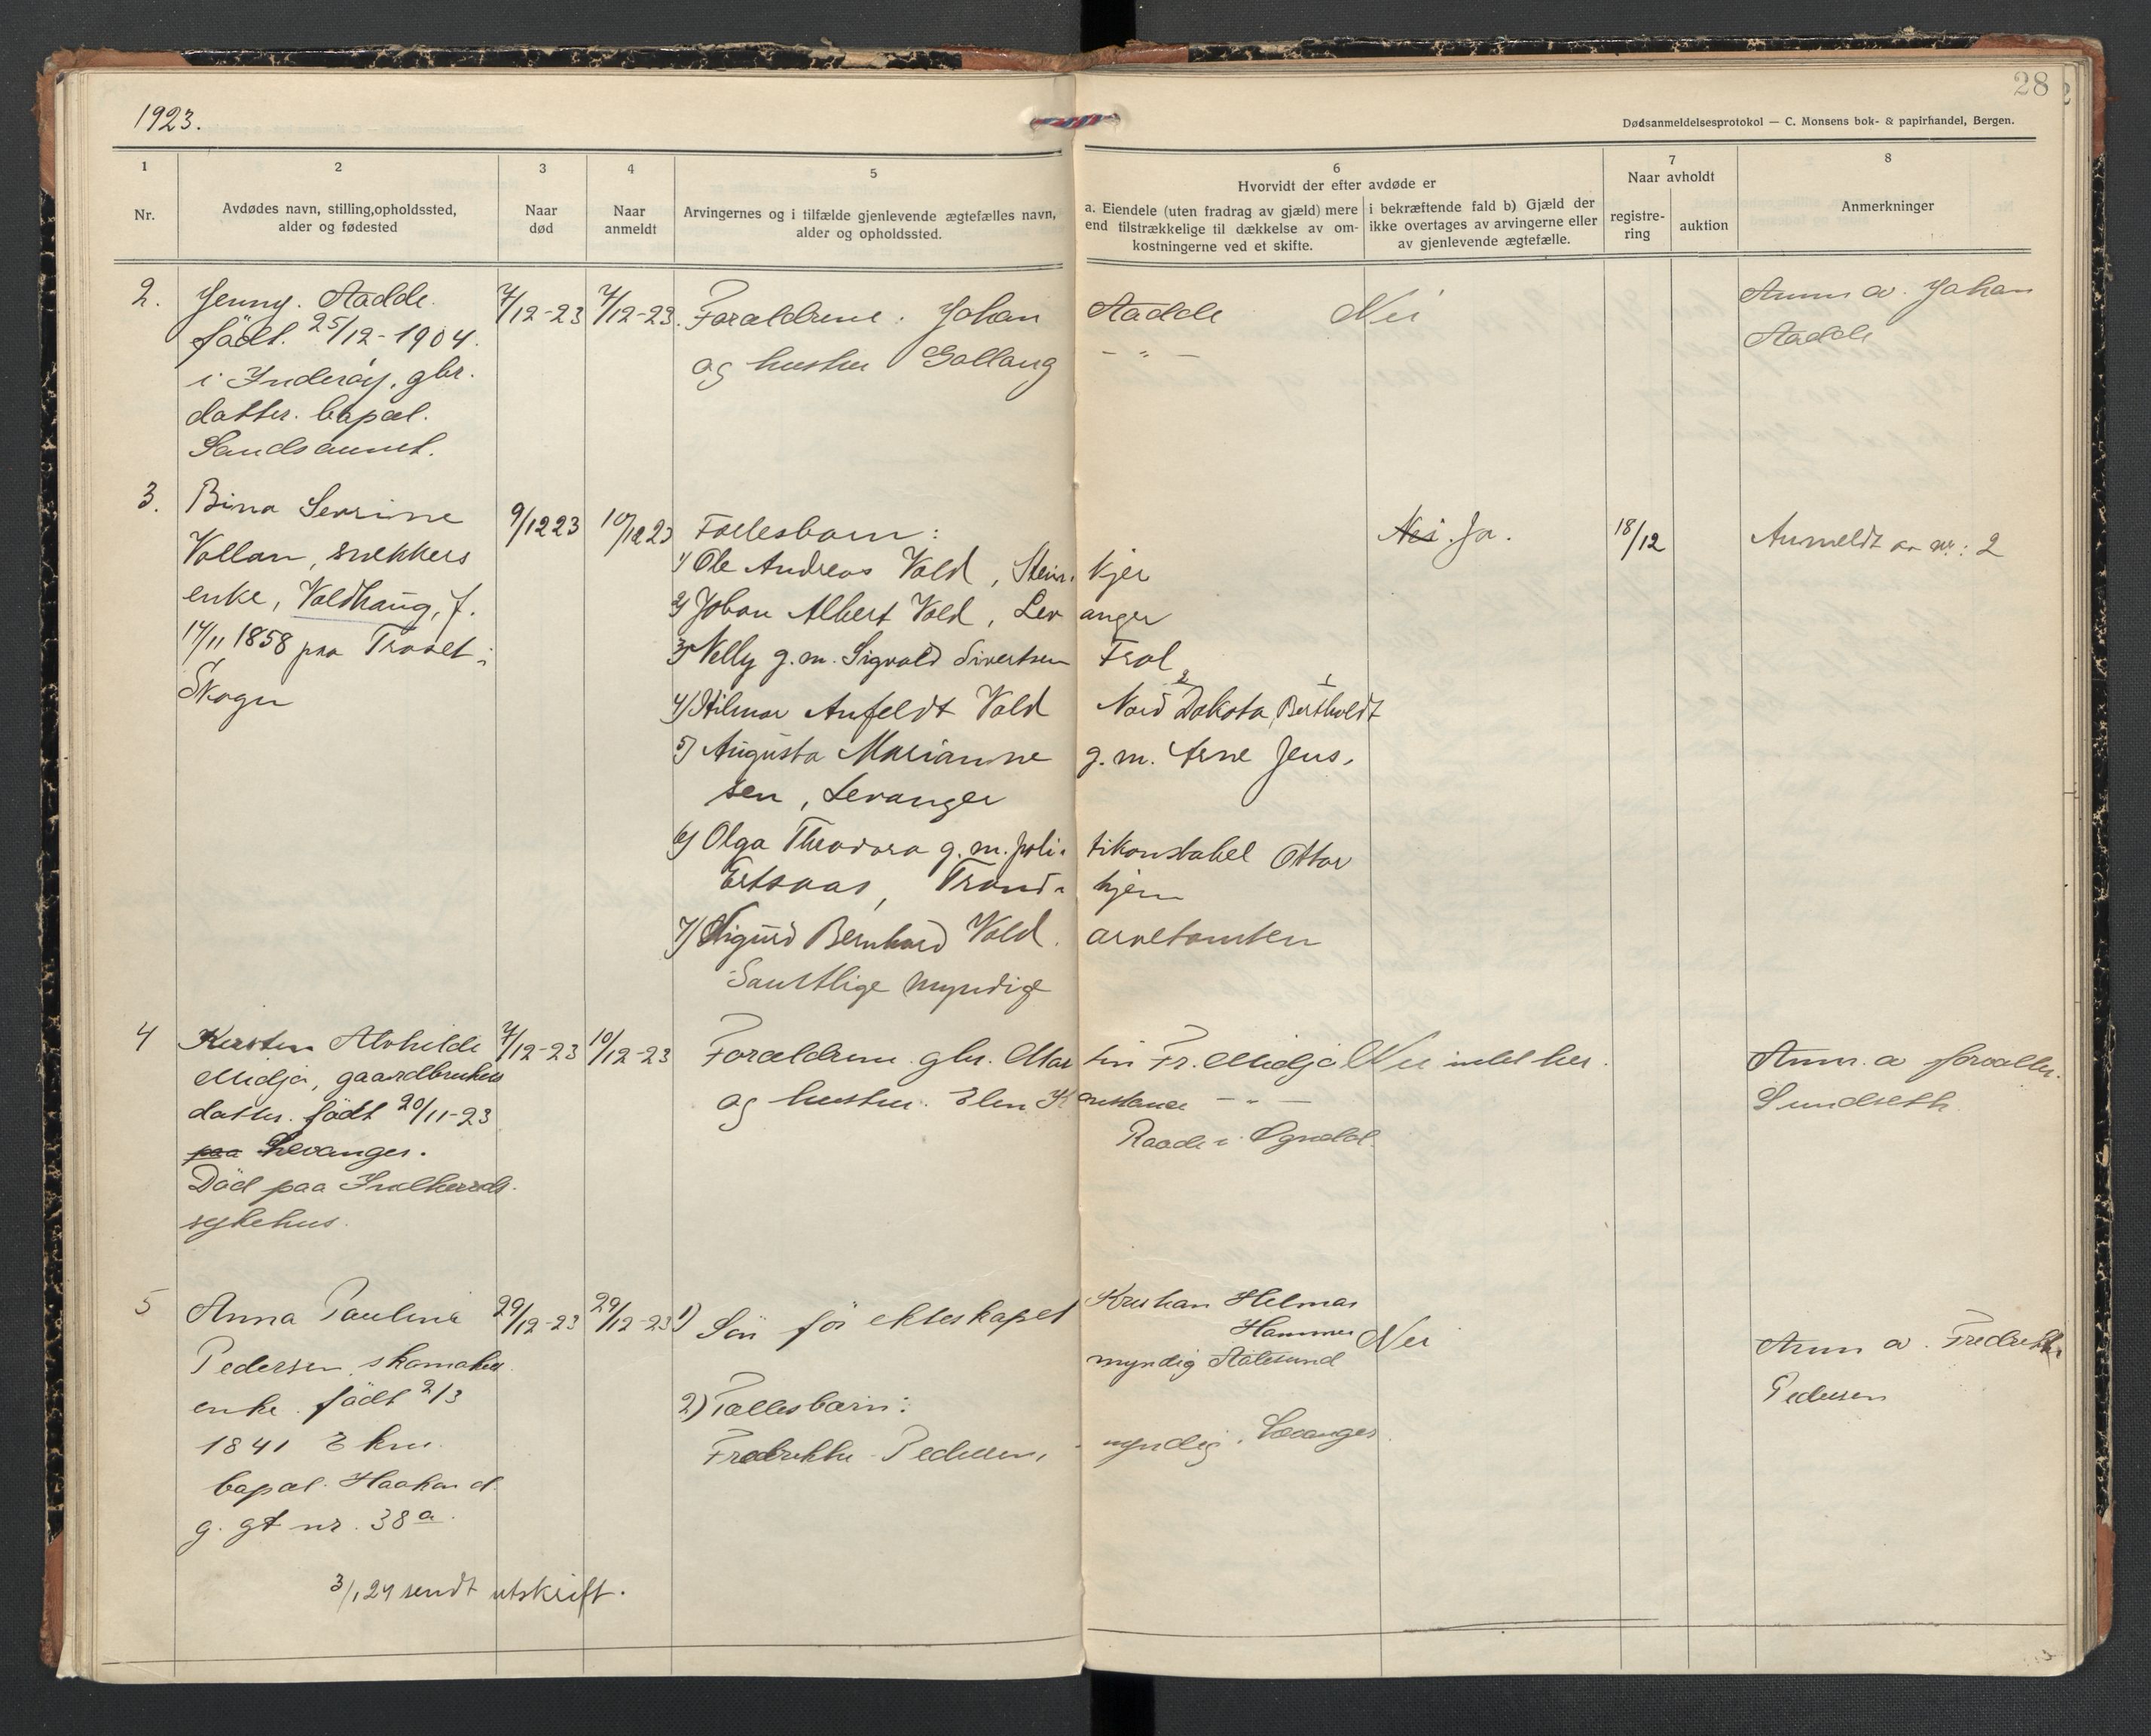 28
1923.
Dødsanmeldelsesprotokol — C. Monsens bok- & papirhandel, Bergen.
1
Nr.
2
Avdødes navn, stilling, opholdssted,
alder og fødested
3
Naar
død
4
Naar
anmeldt
5
Arvingernes og i tilfælde gjenlevende ægtefælles navn,
alder og opholdssted.
6
Hvorvidt der efter avdøde er
a. Eiendele (uten fradrag av gjæld) mere
end tilstrækkelige til dækkelse av om-
kostningerne ved et skifte.
i bekræftende fald b) Gjæld der
ikke overtages av arvingerne eller
av gjenlevende ægtefælle.
7
Naar avholdt
registre-
ring
auktion
8
Anmerkninger
2.
Jenny. Aadde.
födt. 25/12-1904.
i Inderöy, gbr.
datter. bopæl.
Sandsaunet.
7/12-23
7/12-23.
Forældrene. Johan Aadde
og hustru Gollaug - " -
Nei
Anm av. Johan
Aadde
3.
Bina Serine
Vollan, snekkers
enke, Voldhaug, f.
14/11 1858 paa Troset i
Skogn
9/12 23
10/12 23
Fællesbarn:
1) Ole Andreas Vold, Steinkjer
2) Johan Albert Vold, Levanger
3) Nelly g.m. Sigvald Sivertsen Frol
4) Hilmar Anfeldt Vold Nord Dakota, Bertholdt
5) Augusta Marianne g.m. Arne Jens-
sen, Levanger
6) Olga Theodora g.m. politikonstabel Ottar
Ertsaas, Trondhjem
7) Sigurd Bernhard Vold. arvetomten
Samtlige myndige
Nei. Ja.
18/12
Anmeldt av nr: 2
4
Kirsten Alvhilde
Midjo, gaardbrukers
datter. födt 20/11-23
paa Levanger.
Död paa Innherreds.
sykehus.
7/12-23
10/12-23
Forældrene. gbr. Martin Fr. Midjo
og hustru. Elen Konstanse - " -
Raade i Ogndal.
Nei intet her.
Anm. av forvalter.
Sundseth
5
Anna Pauline
Pedersen, skomaker
enke. födt 2/3
1841 Ekne.
bopæl. Haakon d.
g. gt nr. 38 a.
29/12-23
29/12-23
1) Sön för ekteskapet Kristian Helmar
Hammer
myndig Aalesund
2) Fællesbarn:
Fredrikke Pedersen, myndig. Levanger.
Nei
Anm av. Fredrikke
Pedersen
3/1 24 sendt utskrift.